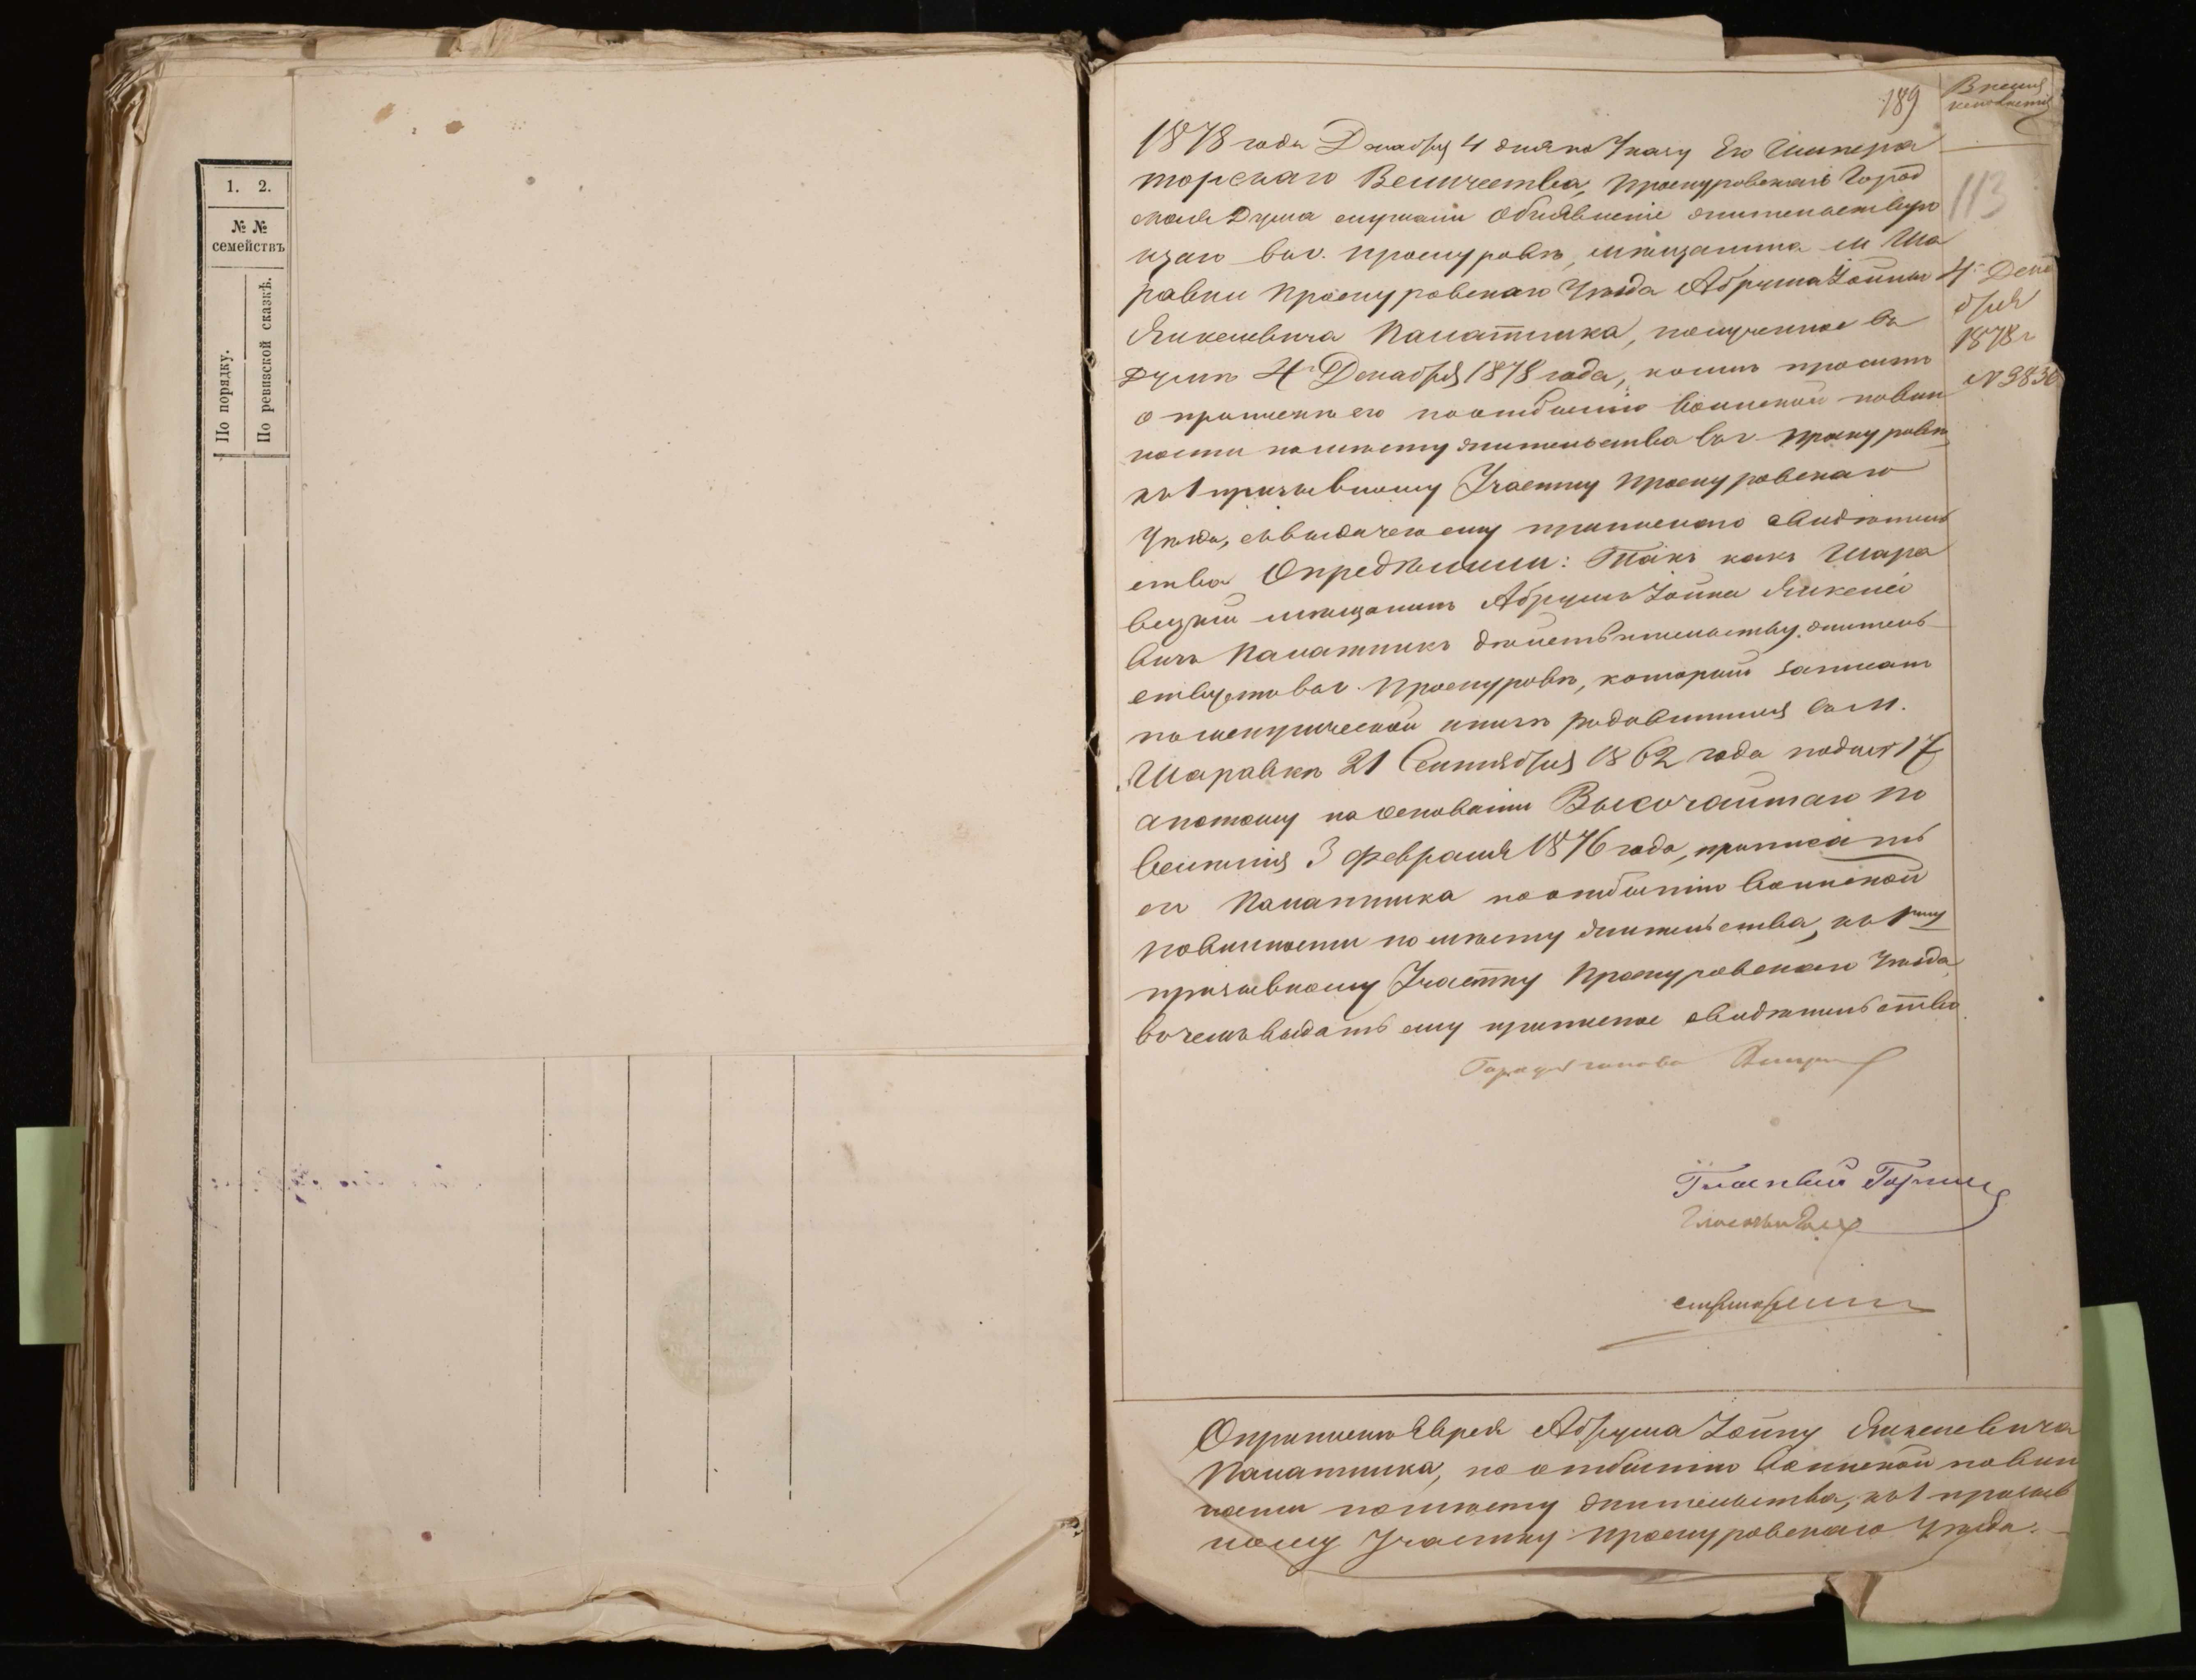 1. 2.
№ №
семействъ
По порядку.
По ревизской сказкѣ.
189
Время
исполненія
113
1878 года Декабря 4 дня по Указу Его Импера
торскаго Величества, Проскуровская Город
ская Дума слушали Объявленіе жительствую
щаго въ г. Проскуровѣ, мѣщанина м. Ша
равки Проскуровскаго Уѣзда Абрума Іойны
Янкелевича Палатника, полученное въ
Думѣ 4 Декабря 1878 года, коимъ проситъ
о припискѣ его по отбытію воинской повин
ности по мѣсту жительства въ г. Проскуровѣ
къ 1 призывному Участку Проскуровскаго
Уѣзда, съ выдачею ему приписнаго свидѣтель
ства Опредѣлили: Такъ какъ Шара
вецкій мѣщанинъ Абрумъ Іойна Янкеле
вичъ Палатникъ дѣйствительно жительствуетъ
въ г. Проскуровѣ, который записанъ
по метрической книгѣ родившимся въ м.
Шаравкѣ 21 Сентября 1862 года подъ № 17
а потому на основаніи Высочайшаго по
велѣнія 3 февраля 1876 года, приписать
его Палатника по отбытію воинской
повинности по мѣсту жительства, къ 1му
призывному Участку Проскуровскаго Уѣзда
въ чемъ выдать ему приписное свидѣтельство.
4 Дека
бря
1878 г
№ 3836
Городской голова
Гласный
Гласный
О припискѣ Еврея Абрума Іойну Янкелевича
Палатника, по отбытію воинской повин
ности по мѣсту жительства, къ 1 призыв
ному Участку Проскуровскаго Уѣзда.